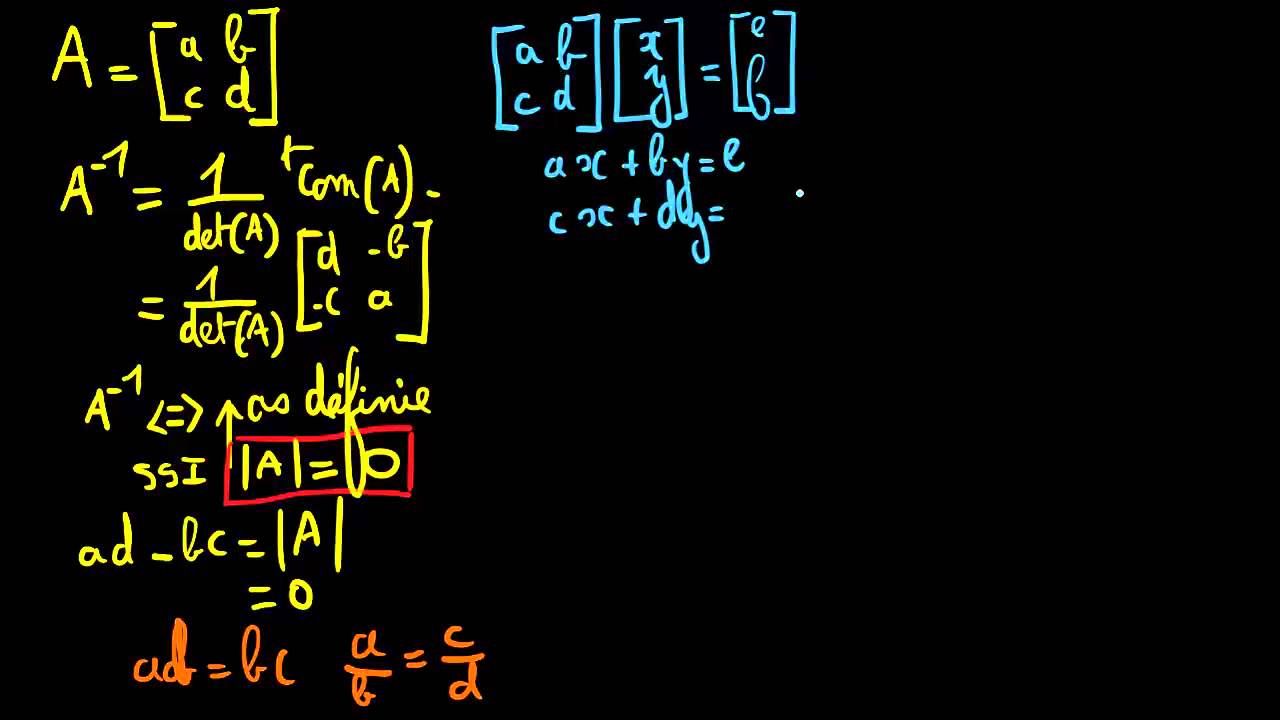 A = [a b
c d]
A⁻¹ = 1/det(A) ᵗCom(A).
= 1/det(A) [d -b
-c a]
A⁻¹ <=> ↑ as définie
ssI |A| = 0
ad - bc = |A|
= 0
ad = bc a/b = c/d
[a b
c d] [x
y] = [e
f]
ax + by = e
cx + dy =